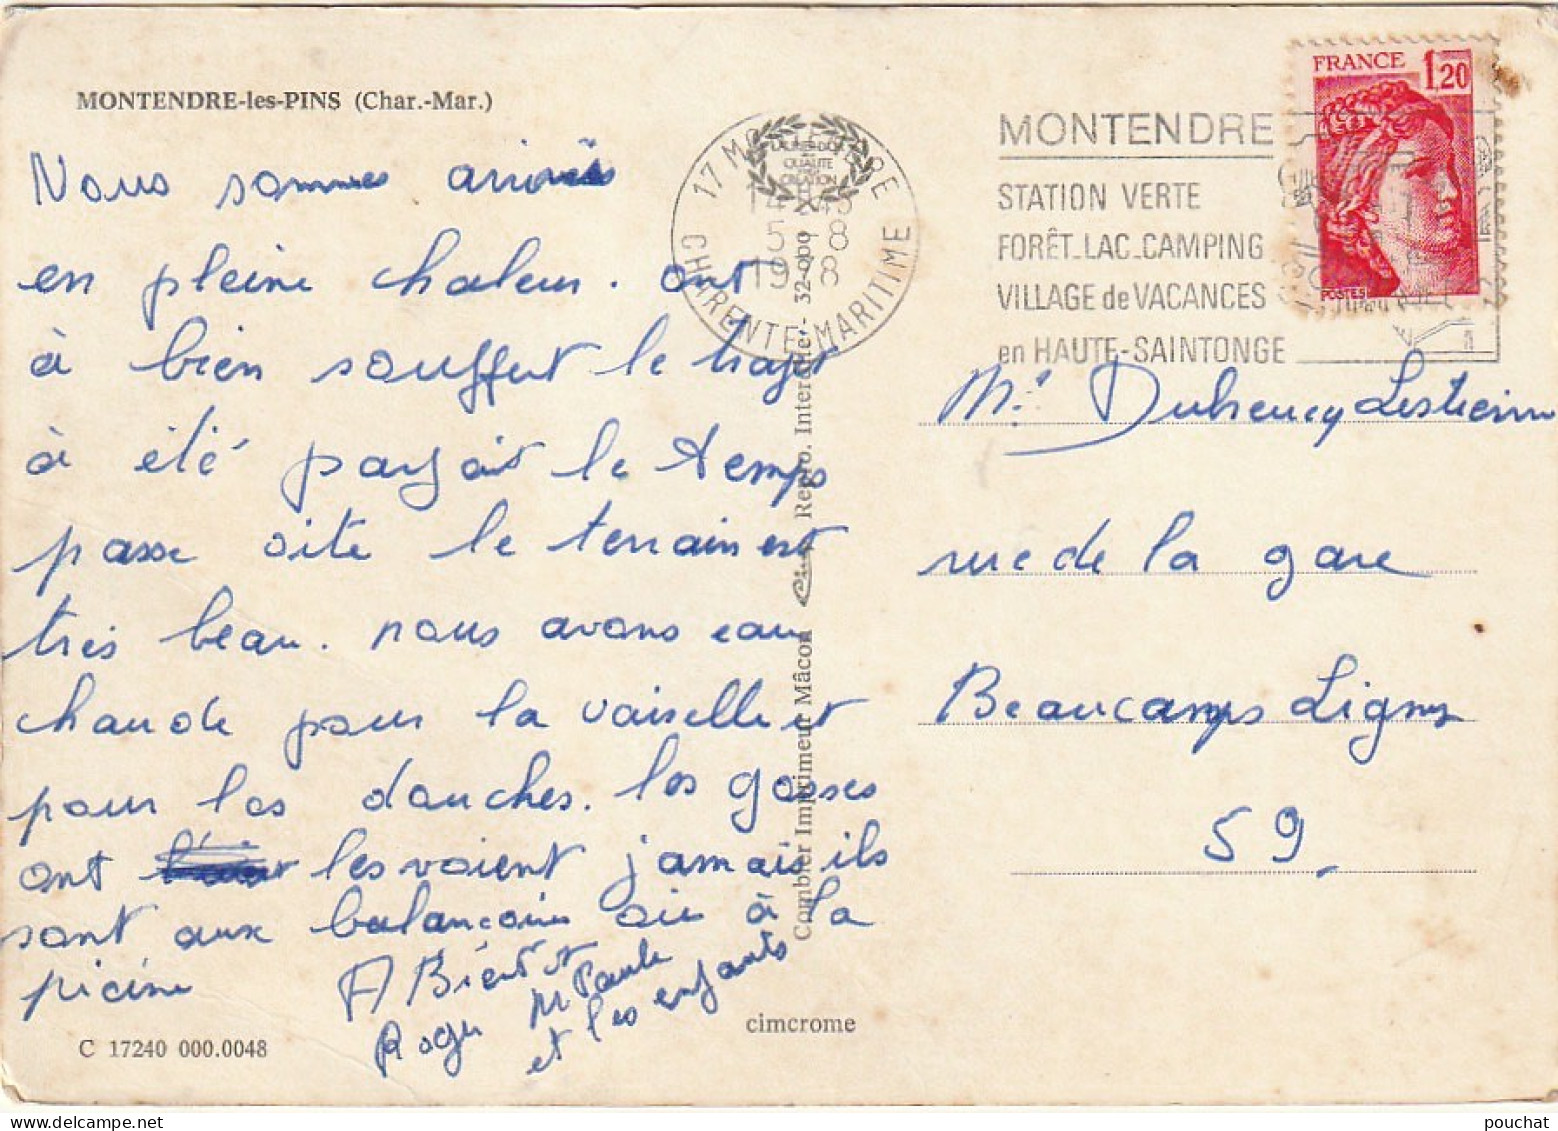 MONTENDRE-les-PINS (Char.-Mar.)
Nous sommes arrivés
en pleine chaleur. ont
à bien souffert le trajet
à été parfait le temps
passe vite le terrain est
très beau. nous avons eau
chaude pour la vaiselle et
pour les douches. les gosses
ont les voient jamais ils
sont aux balançoire ou à la
picine
A Bientôt
Roger M Paule
et les enfants
C 17240 000.0048
cimcrome
Combier Imprimeur Mâcon
Repro. Interdite - 32-090
LAURÉAT DE LA
QUALITÉ
CRÉATION
17 MONTENDRE
14H45
5-8
1978
CHARENTE-MARITIME
MONTENDRE
STATION VERTE
FORÊT_LAC_CAMPING
VILLAGE de VACANCES
en HAUTE-SAINTONGE
FRANCE 1,20
POSTES
Mr Duhremy Lestienne
rue de la gare
Beaucamps Ligny
59.
pouchat